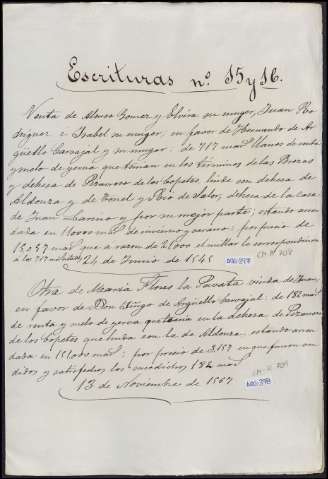 Escrituras nº 15 y 16.
Venta de Alonso Gomez y Elvira su muger, Juan Ro-
driguez e Isabel su muger, en favor de Hernando de Ar-
guello Carvajal y su muger: de 717 mas/ de renta
y suelo de yerva que tenian en los terminos de las Brozas
y dehesa de de los Copetes, linde con dehesa de
Aldonza y de y Rio de Salor, dehesa de la casa
de Juan y por su mejor parte, estando arren-
dada en 11.000 mas/ de invierno y verano: por precio de
15.057 mas/ que a razon de 21.000 el millar le correspondieron
a los 717
24 de Junio de 1545
Otra de Maria Flores la Pavata viuda de
en favor de Don Iñigo de Arguello Carvajal: de 182 mas/
de renta y suelo de yerva que tenia en la dehesa de
de los Copetes que linda con la de Aldonza, estando arren-
dada en 15.000 mas/: por precio de en que fueron ven-
didos y satisfechos los susodichos 182 mas/
13 de Noviembre de 1567